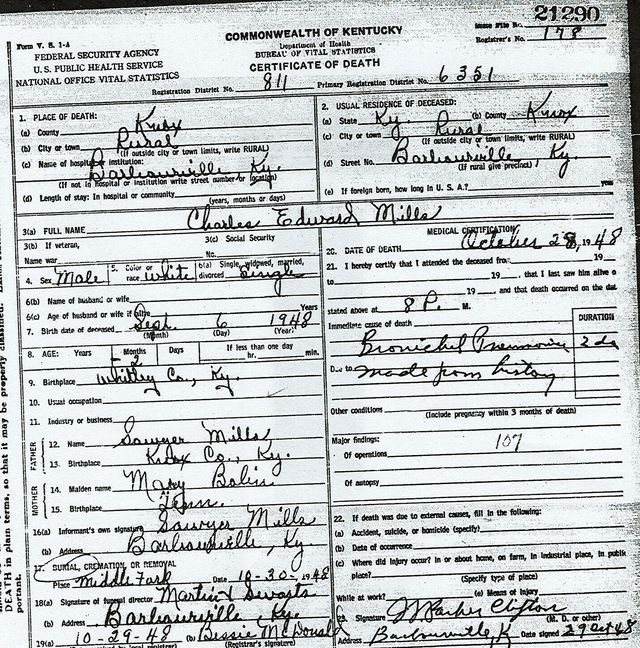 21290
State File No.
COMMONWEALTH OF KENTUCKY
Registrar's No. 178
Form V. S. 1-A
Department of Health
FEDERAL SECURITY AGENCY
BUREAU OF VITAL STATISTICS
U. S. PUBLIC HEALTH SERVICE
CERTIFICATE OF DEATH
NATIONAL OFFICE VITAL STATISTICS
Registration District No. 811 Primary Registration District No. 6351
1. PLACE OF DEATH:
(a) County Knox
(b) City or town Rural
(If outside city or town limits, write RURAL)
(c) Name of hospital or institution:
Barbourville Ky.
(If not in hospital or institution write street number or location)
(d) Length of stay: In hospital or community
(years, months or days)
2. USUAL RESIDENCE OF DECEASED:
(a) State Ky. (b) County Knox
(c) City or town Rural
(If outside city or town limits, write RURAL)
(d) Street No. Barbourville, Ky.
(If rural give precinct)
(e) If foreign born, how long in U. S. A.? years
3(a) FULL NAME Charles Edward Mills
3(b) If veteran, 3(c) Social Security
Name war No.
4. Sex Male 5. Color or race White 6(a) Single, widowed, married, divorced Single
6(b) Name of husband or wife
6(c) Age of husband or wife if alive Years
7. Birth date of deceased Sept. 6 1948
(Month) (Day) (Year)
8. AGE: Years Months Days If less than one day
hr. min.
9. Birthplace Whitley Co., Ky.
10. Usual occupation
11. Industry or business
FATHER
12. Name Sawyer Mills
13. Birthplace Knox Co., Ky.
MOTHER
14. Maiden name Mary Bolin
15. Birthplace Tenn.
16(a) Informant's own signature Sawyer Mills
(b) Address Barbourville, Ky
17. BURIAL, CREMATION, OR REMOVAL
Place Middle Fork Date 10-30-1948
18(a) Signature of funeral director Martin &
(b) Address Barbourville Ky.
19(a) 10-29-48 (b) Bessie McDonald
(Registrar's signature)
MEDICAL CERTIFICATION
20. DATE OF DEATH October 28, 1948
21. I hereby certify that I attended the deceased from 19
to 19 , that I last saw him alive o
19 and that death occurred on the dat
stated above at 8 P. M.
DURATION
Immediate cause of death
Bronichel Pneumonia 2 da
Due to made from history
Other conditions
(Include pregnancy within 3 months of death)
Major findings: 107
Of operations
Of autopsy
22. If death was due to external causes, fill in the following:
(a) Accident, suicide, or homicide (specify)
(b) Date of occurrence
(c) Where did injury occur? in or about home, on farm, in industrial place, in public
place?
(Specify type of place)
While at work? (e) Means of injury
23. Signature Parker Clifton
(M. D. or other)
Address Barbourville, K Date signed 29 Oct 48
DEATH in plain terms, so that it may be properly classified.
portant.